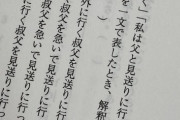 く「私は父と見送りに行
を一文で表したとき、解釈
）
外に行く叔父を見送りに行
行く叔父を急いで見送りに行っ
叔父を急いで見送りに行っ
叔父を見送りに行っ